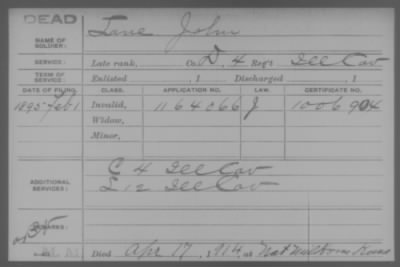 DEAD
NAME OF SOLDIER: Lane John
SERVICE: Late rank, Co. D, 4 Reg't Ill Cav
TERM OF SERVICE: Enlisted , 1 Discharged , 1
DATE OF FILING. CLASS. APPLICATION NO. LAW. CERTIFICATE NO.
1895 Feb 1 Invalid, 1164066 J 1006904
Widow,
Minor,
ADDITIONAL SERVICES: C 4 Ill Cav
L 12 Ill Cav
REMARKS:
Died Apr 17, 1914, at Nat